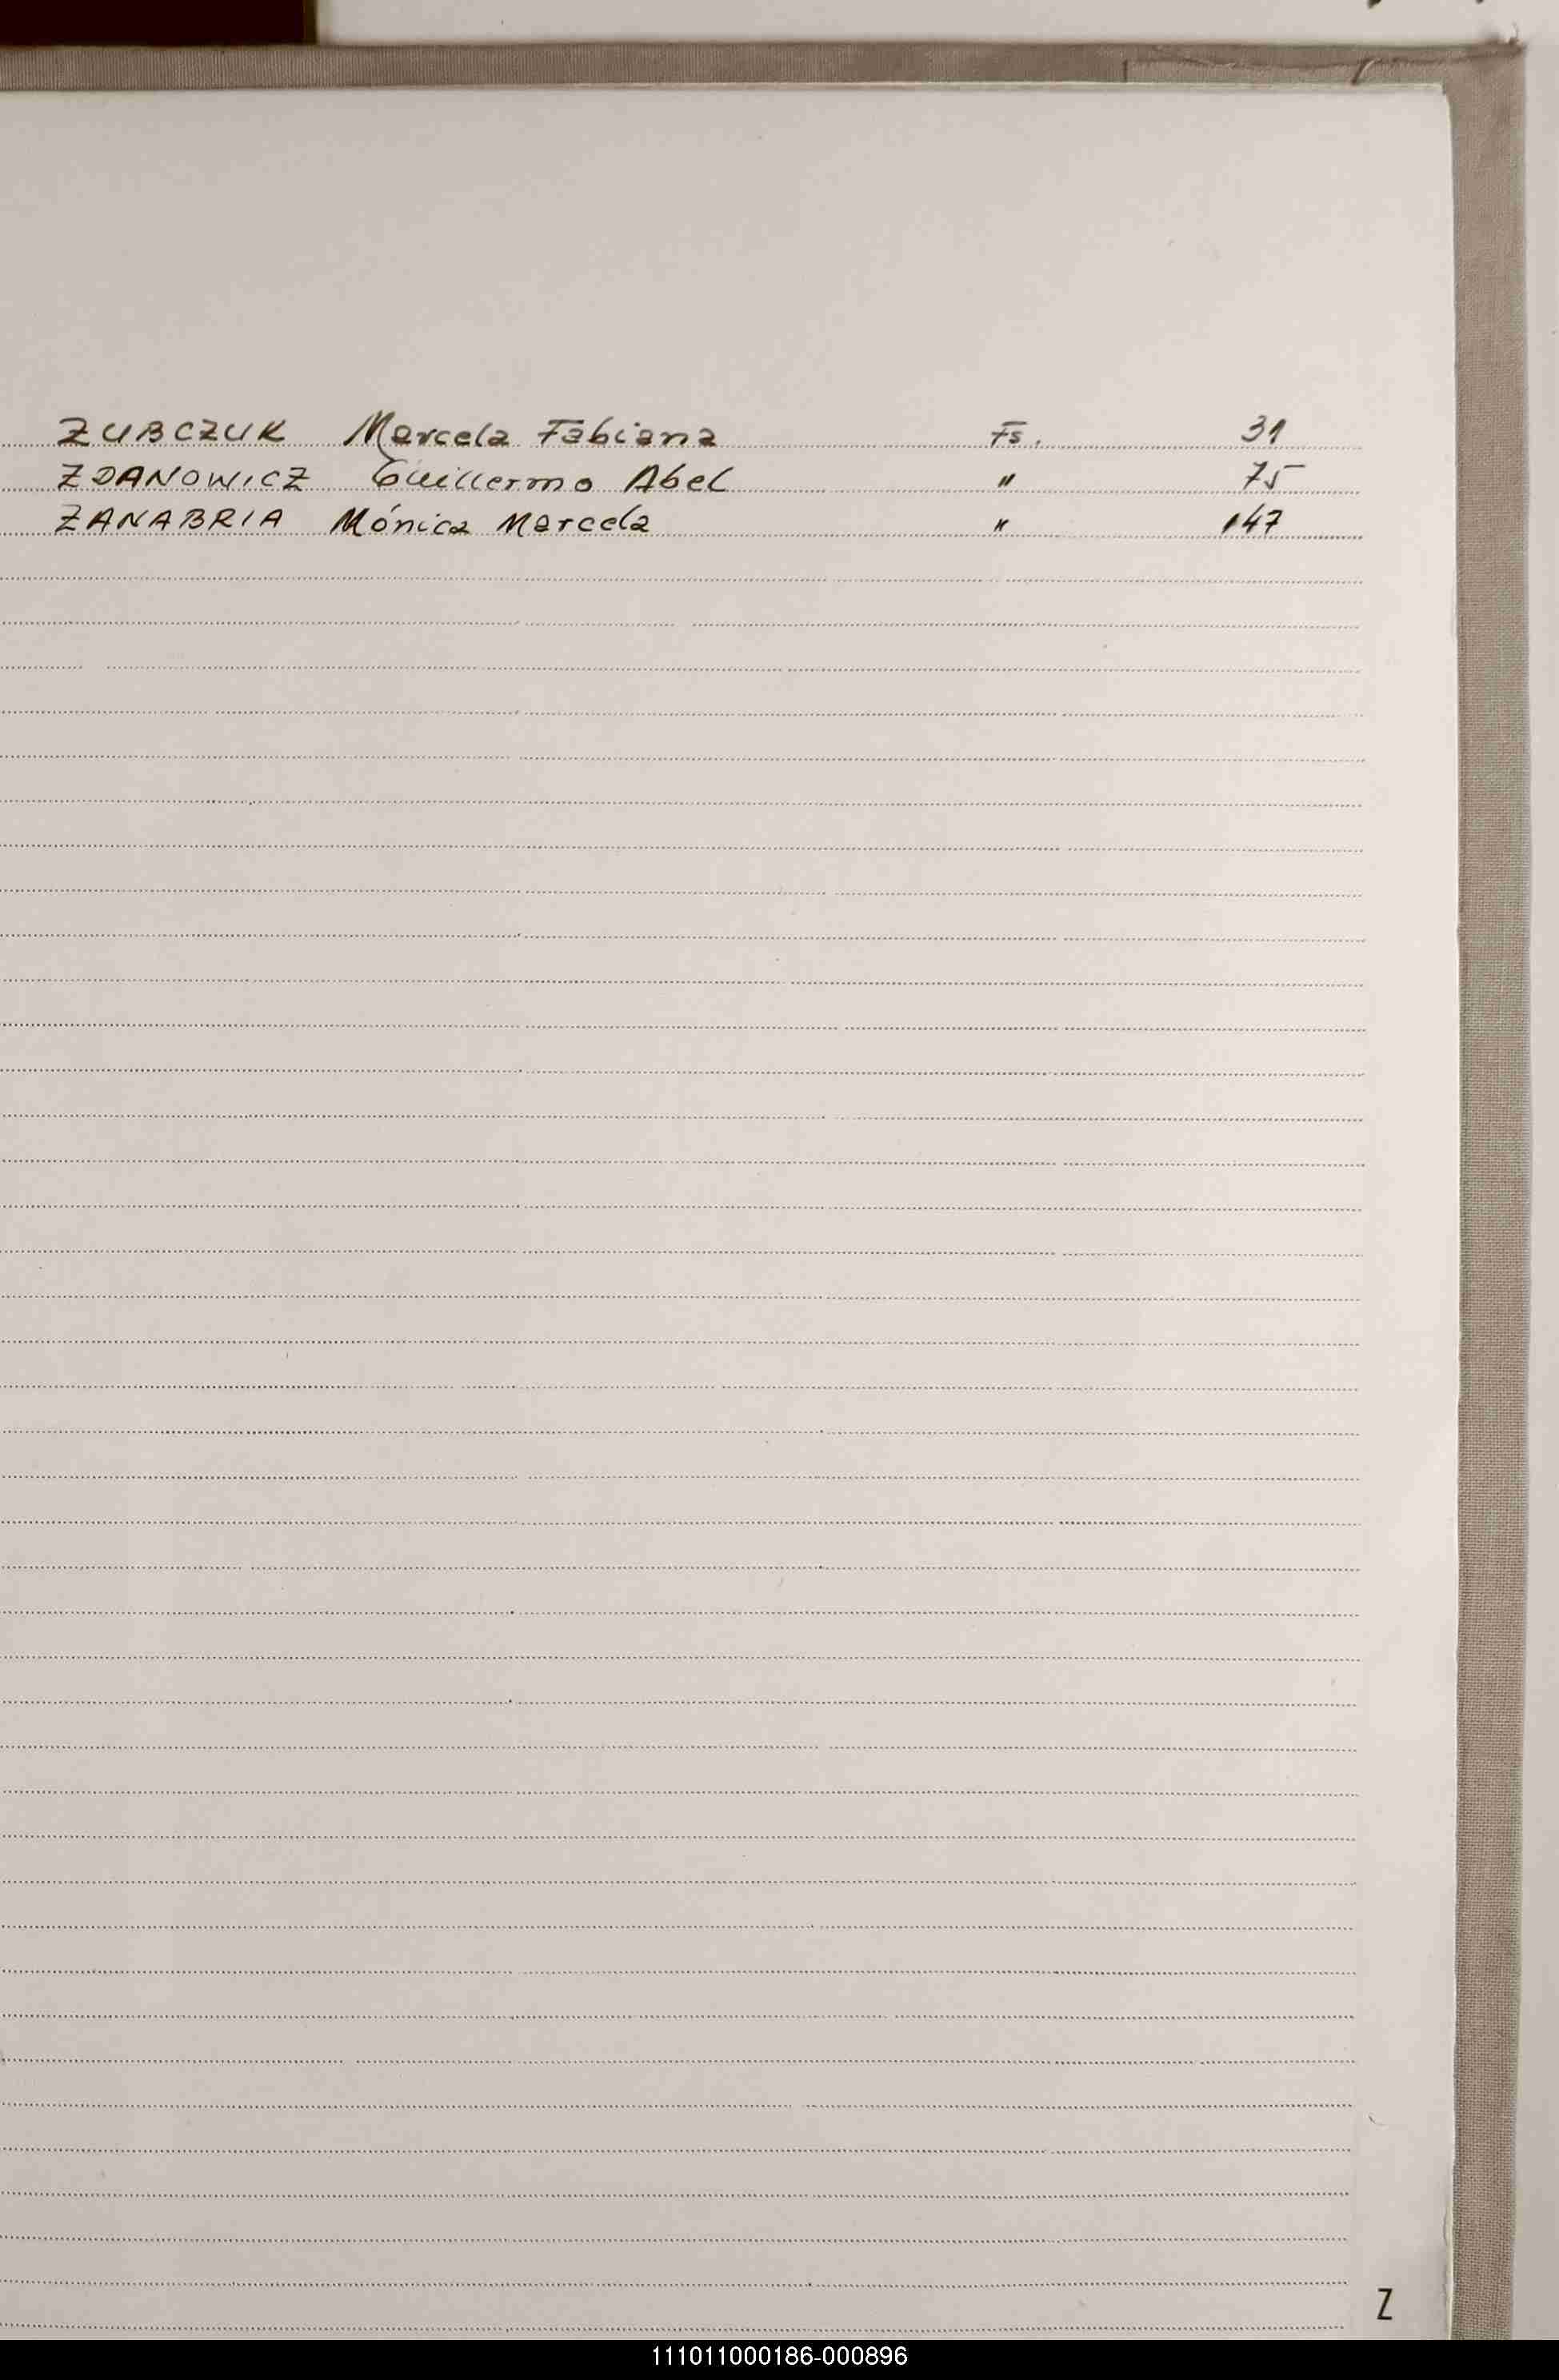 ZUBCZUK Marcela Fabiana Fs. 31
ZDANOWICZ Guillermo Abel " 75
ZANABRIA Mónica Marcela " 147
Z
111011000186-000896